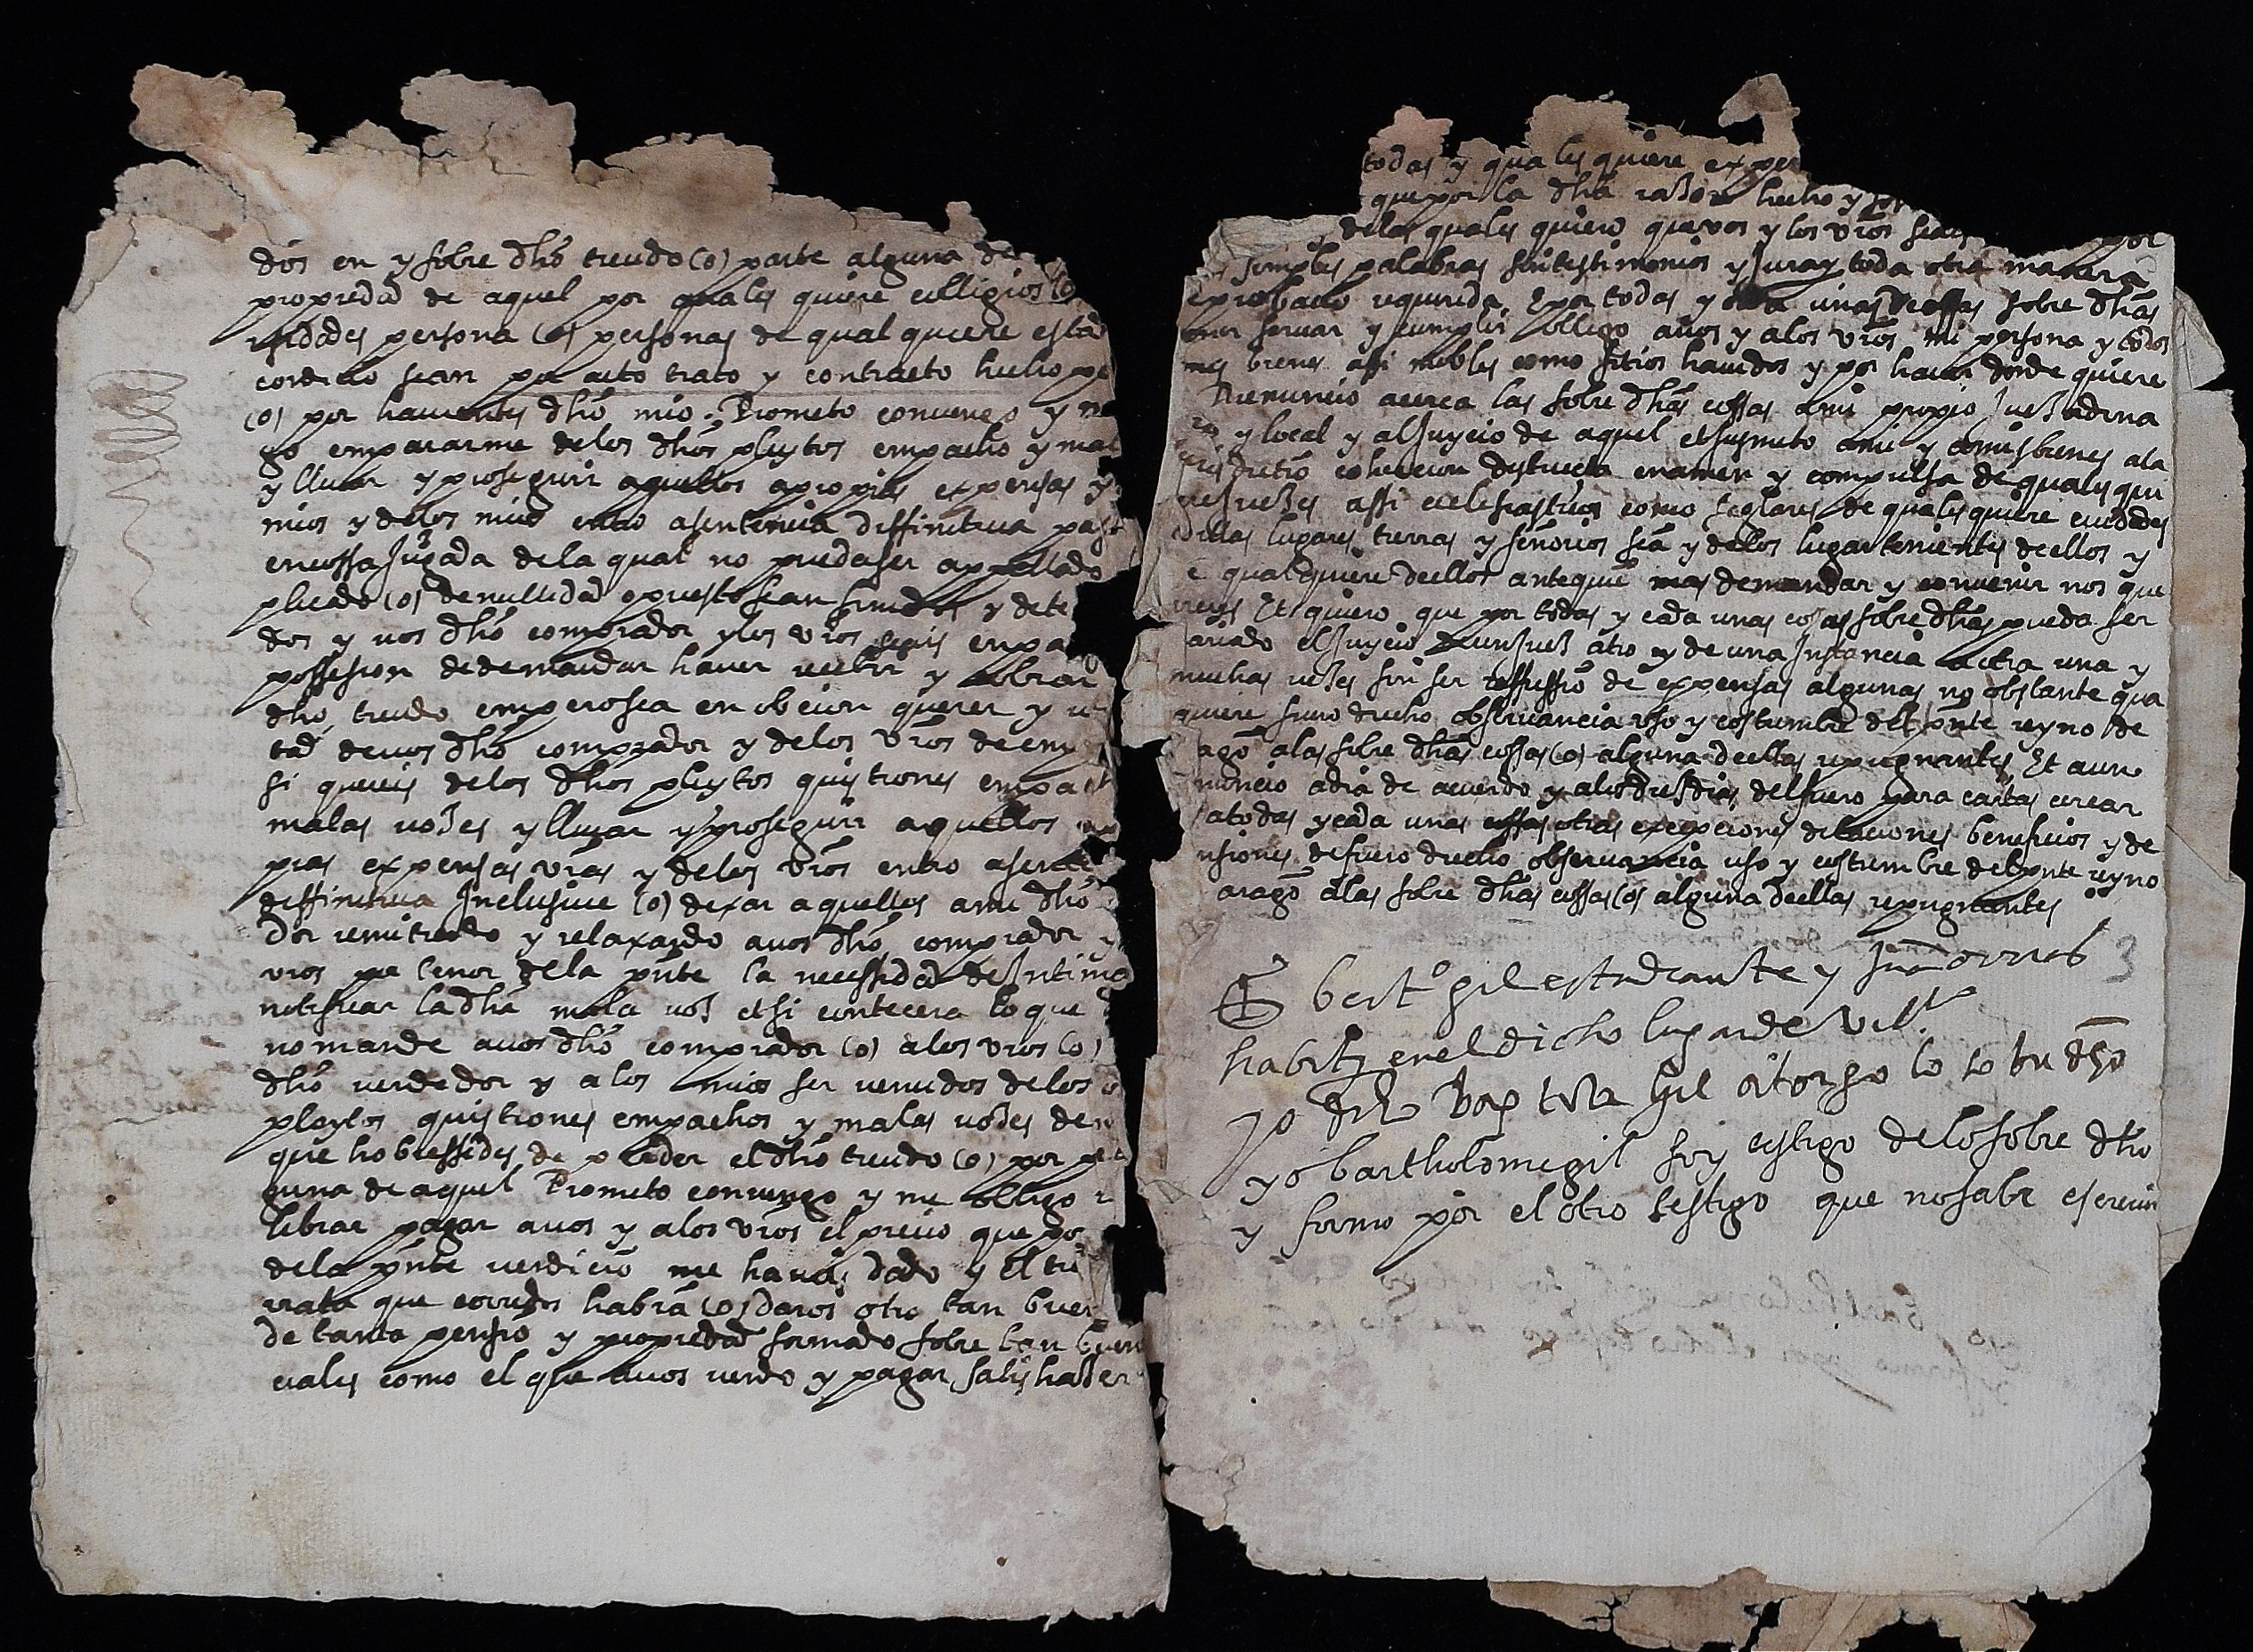 dos en y sobre dhõ treudo (o) parte alguna de
propiedad de aquel por quales quiere colligios (o)
rsidades persona (o) personas de qual quiere estad
condicio sean por acto trato y contracto hecho
(o) por havientes dhõ mio. Prometo convengo y
go empararme delos dhõs pleytos empacho y mal
y llevar y proseguir aquellos a propias expensas y
mias y delos mios entro a sentencia diffinitiva pas
en cossa Juzgada de la qual no pueda ser appellado
plicado (o) de nullidad opuesto sean
dos y vos dhõ comprador y los vros seais en pa
possesion de demandar haver recebir y cobrar
dhõ treudo empero sea en obcion querer y
tad de vos dhõ comprador y delos vros de em
si quereis delos dhos pleytos quistiones empach
malas vozes y llevar y proseguir aquellos
pias expensas vras y delos vros entro a senten
diffinitiva Inclusive (o) dexar aquellos a mi dhõ
dor remitiendo y relaxando a vos dhõ comprador y
vros por tenor dela pñte la necessidad de Intima
notificar la dhã mala voz et si contecera lo que
no mande a vos dhõ comprador (o) a los vros (o)
dhõ vendedor y a los mios ser vencidos delos
pleytos quistiones empachos y malas vozes de
que hobiessedes de perder el dhõ treudo (o) por
guna de aquel Prometo convengo y me obligo
librar pagar a vos y a los vros el precio que po
dela pñte vendicio me haveis dado y el tre
rrata que corrido habra (o) daros otro tan buen
de tanta pensio y propiedad formado sobre tan buen
ciales como el que a vos vendo y pagar satishazer
todas y quales quiere expen
que por la dhã razon hecho y
delas quales quiero que vos y los vros seais
simples palabras sin testimonios y Jura y toda otra manera
e probacio requerida. E por todas y cada unas cossas sobre dhãs
ener servar y cumplir obligo a vos y a los vros mi persona y todos
mis bienes assi mobles como sitios havidos y por haver donde quiere
Renuncio acerca las sobre dhãs cossas a mi propio Juez ordina
rio y local y al Juycio de aquel et Jusmeto a mi y a mis bienes a la
Jurisdictio cohercion destrueta examen y compulsa de quales qui
re Juezes assi ecclesiasticos como seglares de quales quiere ciudades
villas lugares tierras y señorios sea y delos lugartenientes de ellos y
e qualquiere de ellos ante quie mas demandar y convenir nos que
reys Et quiero que por todas y cada unas cosas sobre dhãs pueda ser
variado el Juycio de un Juez a otro y de una Instancia a otra una y
muchas vezes sin ser reffussio de expensas algunas no obstante qua
quiere fuero drecho observancia uso y costumbre del pñte reyno de
agõ a las sobre dhãs cossas (o) alguna de ellas repugnantes Et aun
nuncio a dia de acuerdo y a los diez dias del fuero para cartas cercar
a todas y cada unas cossas otras excepciones dilaciones beneficios y de
nsiones de fuero drecho observancia uso y costumbre del pñte reyno
aragõ a las sobre dhãs cossas (o) alguna de ellas repugnantes
bertº gil estudiante y Juº
3
habitz en el dicho lugar de vill
yo Baptista Gil otorgo lo so bre dho
yo bartholome gil soy testigo de lo sobre dhõ
y firmo por el otro testigo que no sabe escrevir